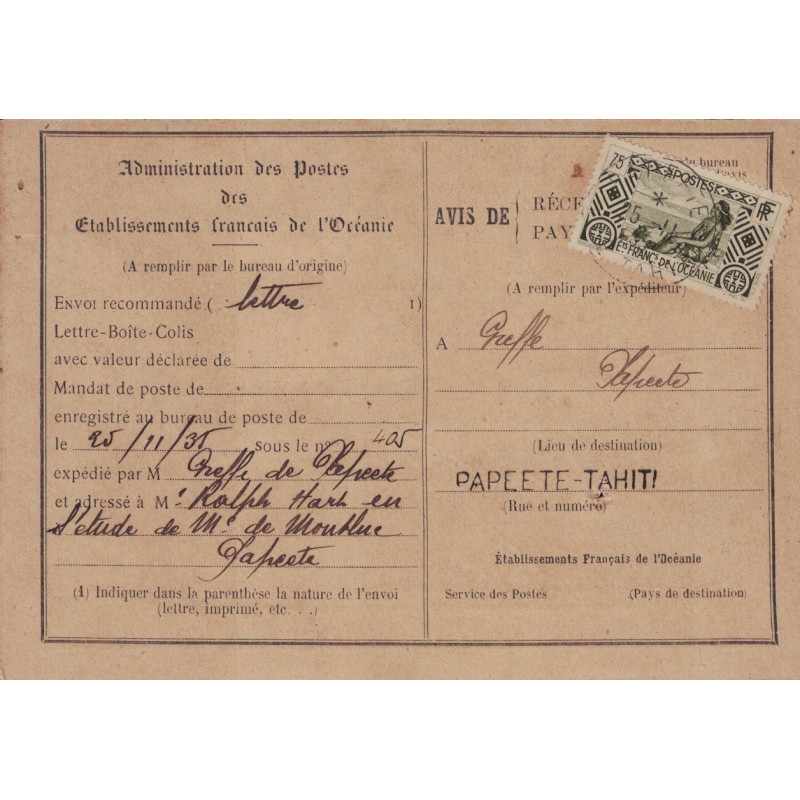 Administration des Postes
des
Etablissements français de l'Océanie
(A remplir par le bureau d'origine)
Envoi recommandé ( lettre 1)
Lettre-Boîte-Colis
avec valeur déclarée de
Mandat de poste de
enregistré au bureau de poste de
le 25/11/35 sous le n° 405
expédié par M Greffe de Papeete
et adressé à Mr Ralph Hart en
l'étude de Me de Montluc
Papeete
(1) Indiquer dans la parenthèse la nature de l'envoi
(lettre, imprimé, etc. . .)
du bureau
AVIS DE { RÉCE
PAY
75 POSTES RF
Ets FRANCs DE L'OCÉANIE
(A remplir par l'expéditeur)
A Greffe
Papeete
(Lieu de destination)
PAPEETE-TAHITI
(Rue et numéro)
Établissements Français de l'Océanie
Service des Postes (Pays de destination)